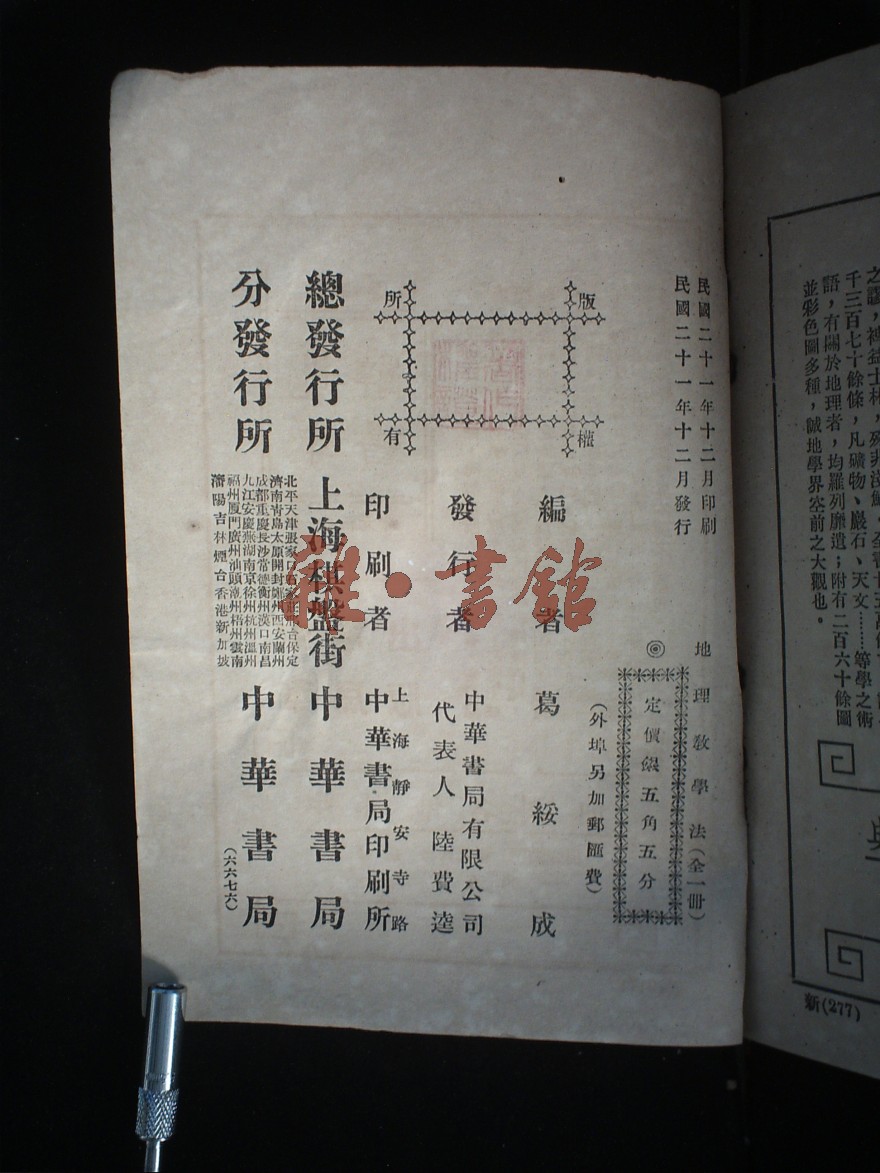 之謬，裨益士林，殊非淺鮮，全書十五萬
千三百七十餘條，凡礦物、巖石、天文……等學之術
語，有關於地理者，均羅列靡遺；附有二百六十餘圖
並彩色圖多種，誠地學界空前之大觀也。
新(277)
民國二十一年十二月印刷
民國二十一年十二月發行
地理教學法(全一冊)
◎定價銀五角五分
(外埠另加郵匯費)
版權所有
編者 葛綏成
發行者 中華書局有限公司
代表人 陸費逵
印刷者 上海靜安寺路
中華書局印刷所
總發行所 上海棋盤街 中華書局
分發行所 中華書局
北平天津張家口保定
濟南青島太原開封鄭州西安蘭州
成都重慶長沙常德衡州漢口南昌
九江安慶蕪湖南京徐州杭州溫州
福州廈門廣州汕頭潮州梧州雲南
瀋陽吉林煙台香港新加坡
(六六七六)
雜·書館